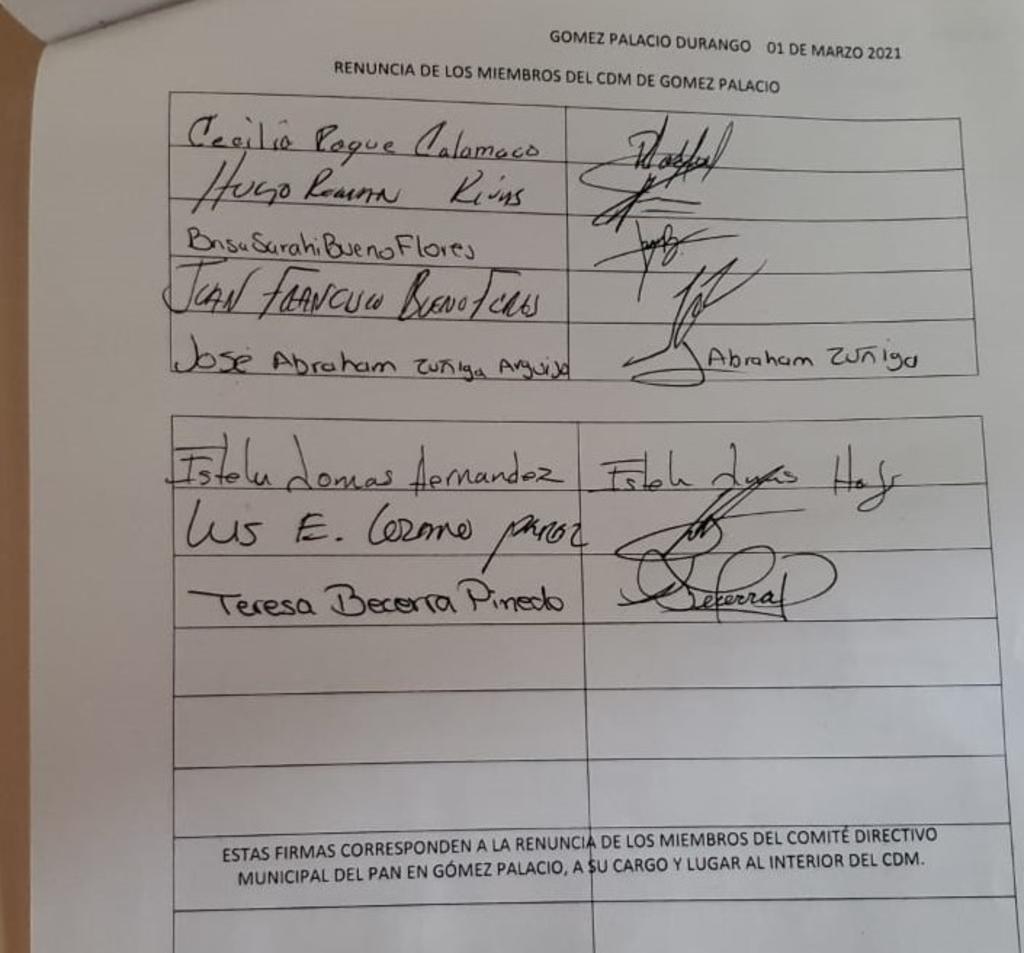 GOMEZ PALACIO DURANGO 01 DE MARZO 2021
RENUNCIA DE LOS MIEMBROS DEL CDM DE GOMEZ PALACIO
Cecilia Roque Calamaco
Hugo Rivas
Sarahi Bueno Flores
JUAN FRANCISCO BUENO
José Abraham Zuñiga Arguijo Abraham Zuñiga
Estela Lomas Hernandez Estela
Luis E. Lozano
Teresa Becerra Pinedo Becerra P
ESTAS FIRMAS CORRESPONDEN A LA RENUNCIA DE LOS MIEMBROS DEL COMITÉ DIRECTIVO
MUNICIPAL DEL PAN EN GÓMEZ PALACIO, A SU CARGO Y LUGAR AL INTERIOR DEL CDM.